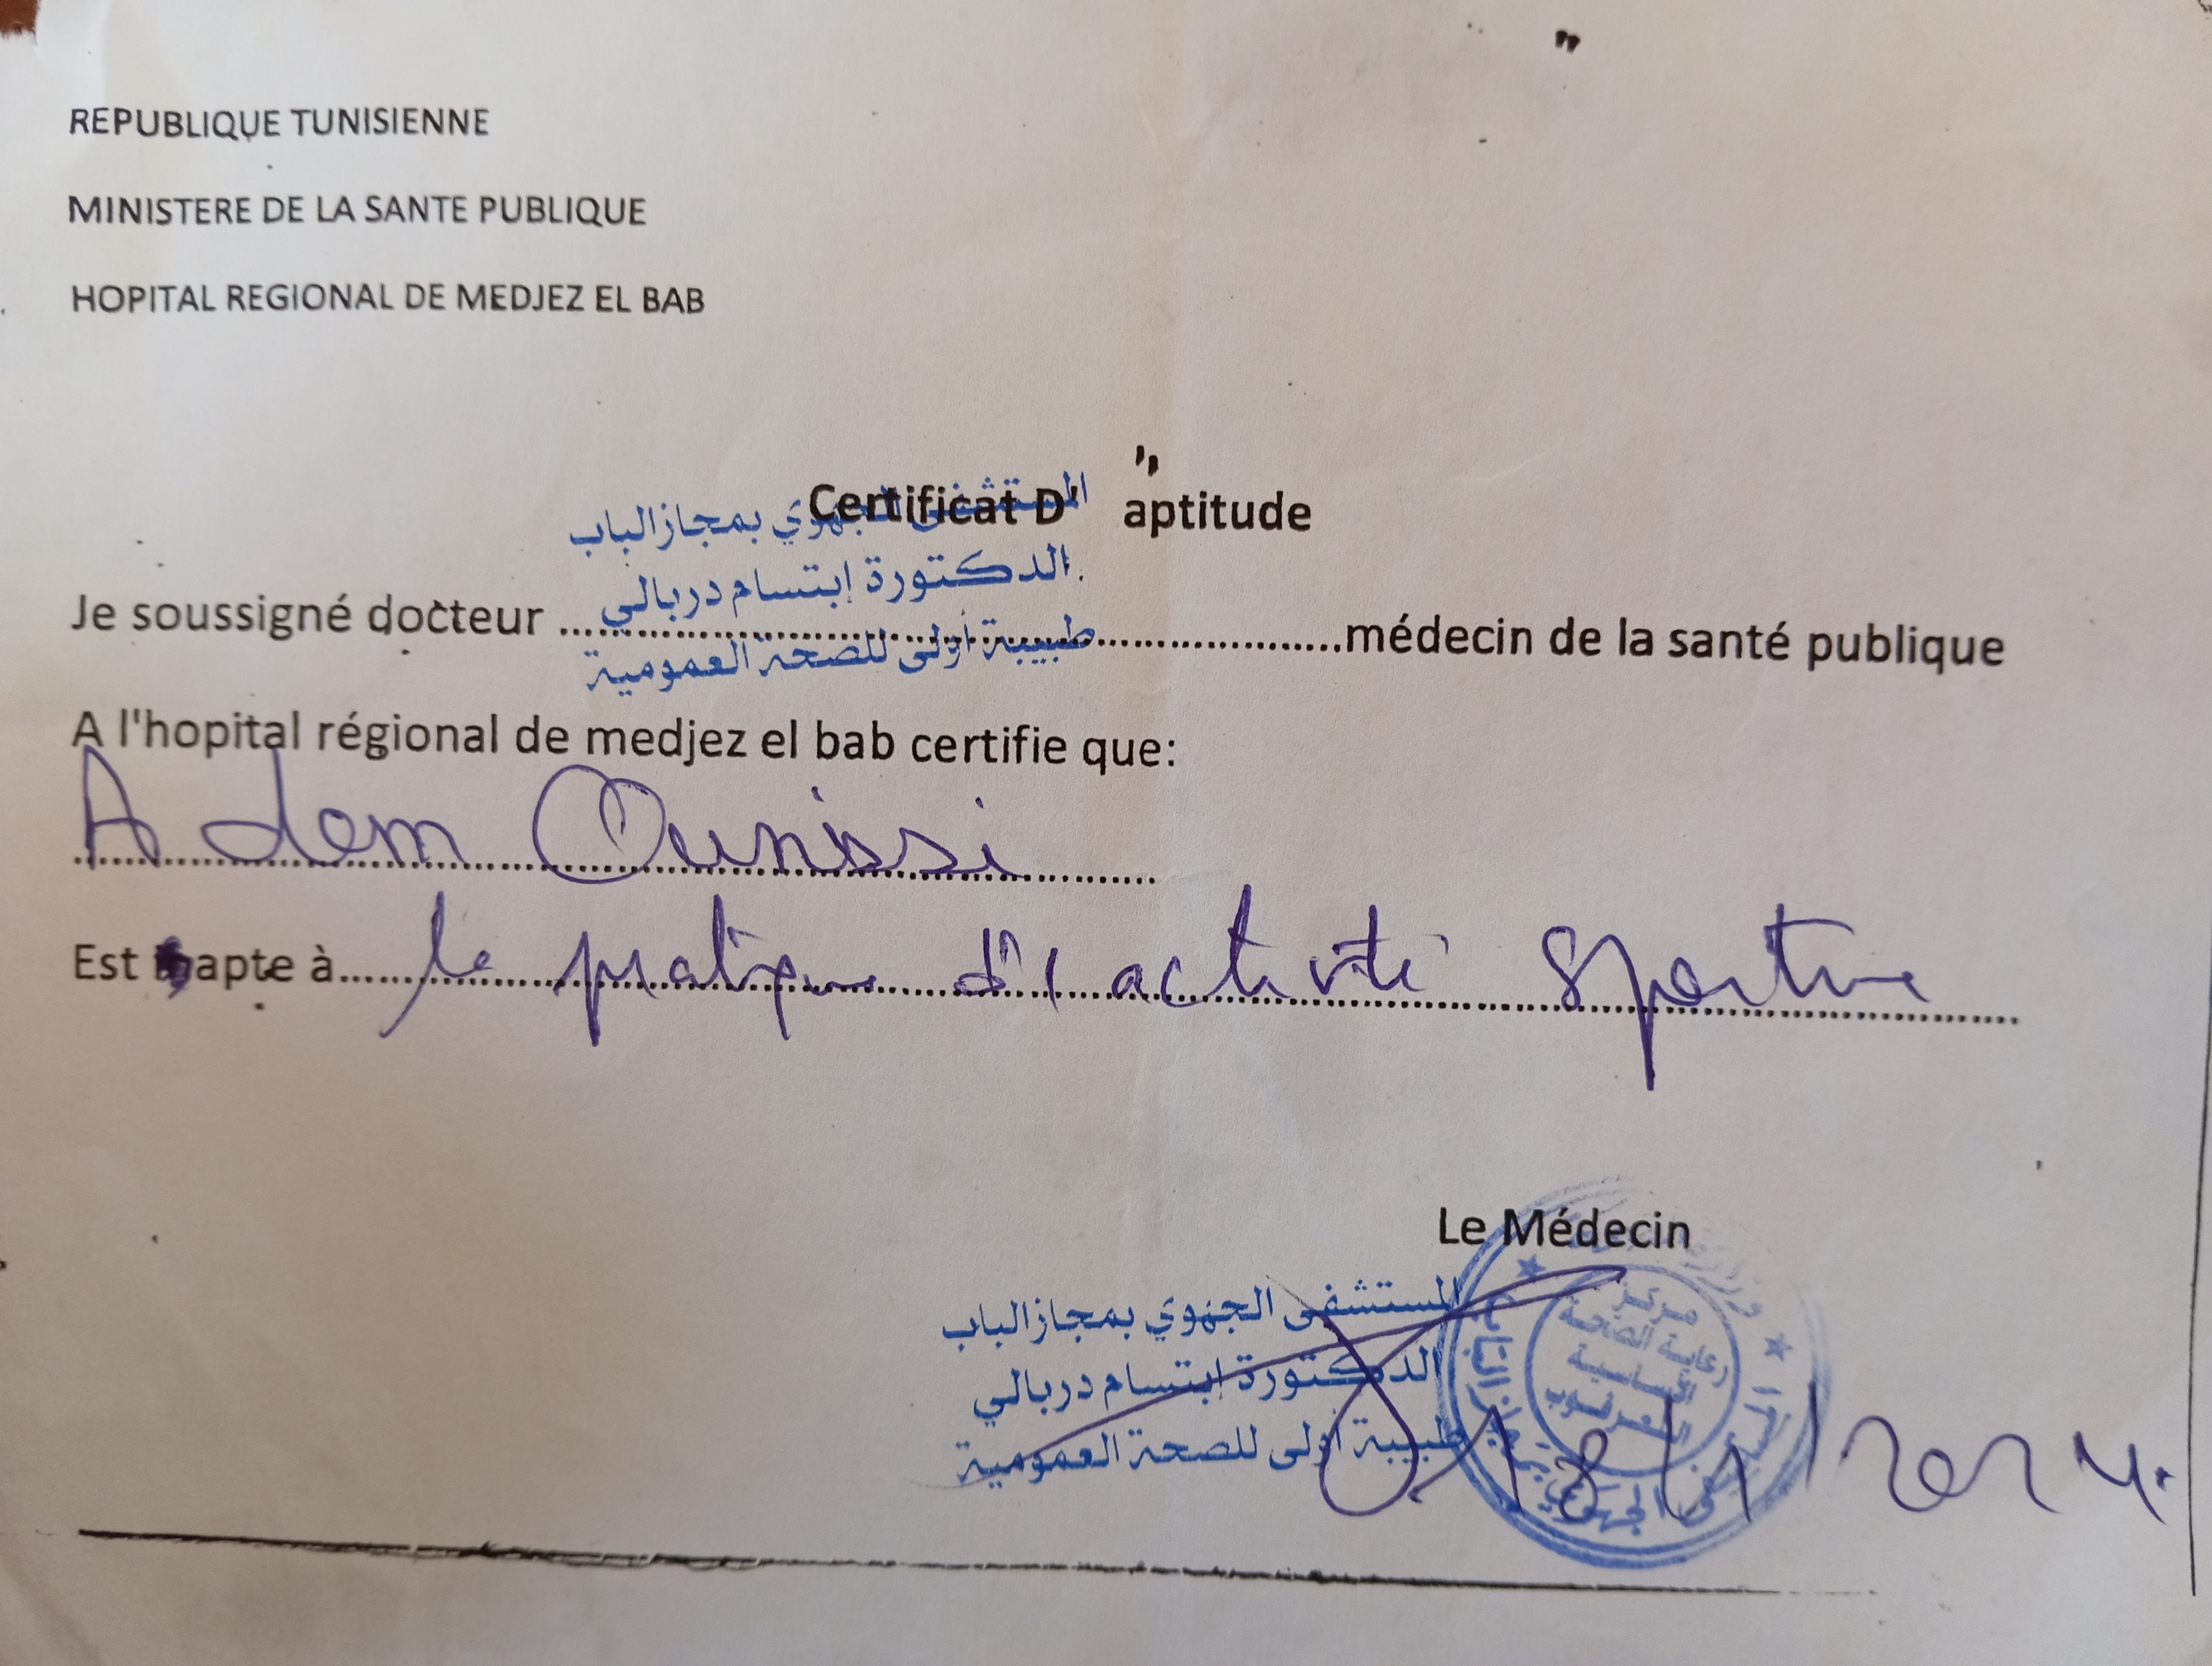 REPUBLIQUE TUNISIENNE
MINISTERE DE LA SANTE PUBLIQUE
HOPITAL REGIONAL DE MEDJEZ EL BAB
"
Certificat D' "aptitude
المستشفى الجهوي بمجاز الباب
الدكتورة إبتسام دربالي
طبيبة أولى للصحة العمومية
Je soussigné docteur ........ médecin de la santé publique
A l'hopital régional de medjez el bab certifie que:
Adem Ounissi
Est apte à la pratique d'l activité Sportive
Le Médecin
المستشفى الجهوي بمجاز الباب
الدكتورة إبتسام دربالي
طبيبة أولى للصحة العمومية
مركز
رعاية الصحة
الأساسية
المستشفى الجهوي بمجاز الباب
2024